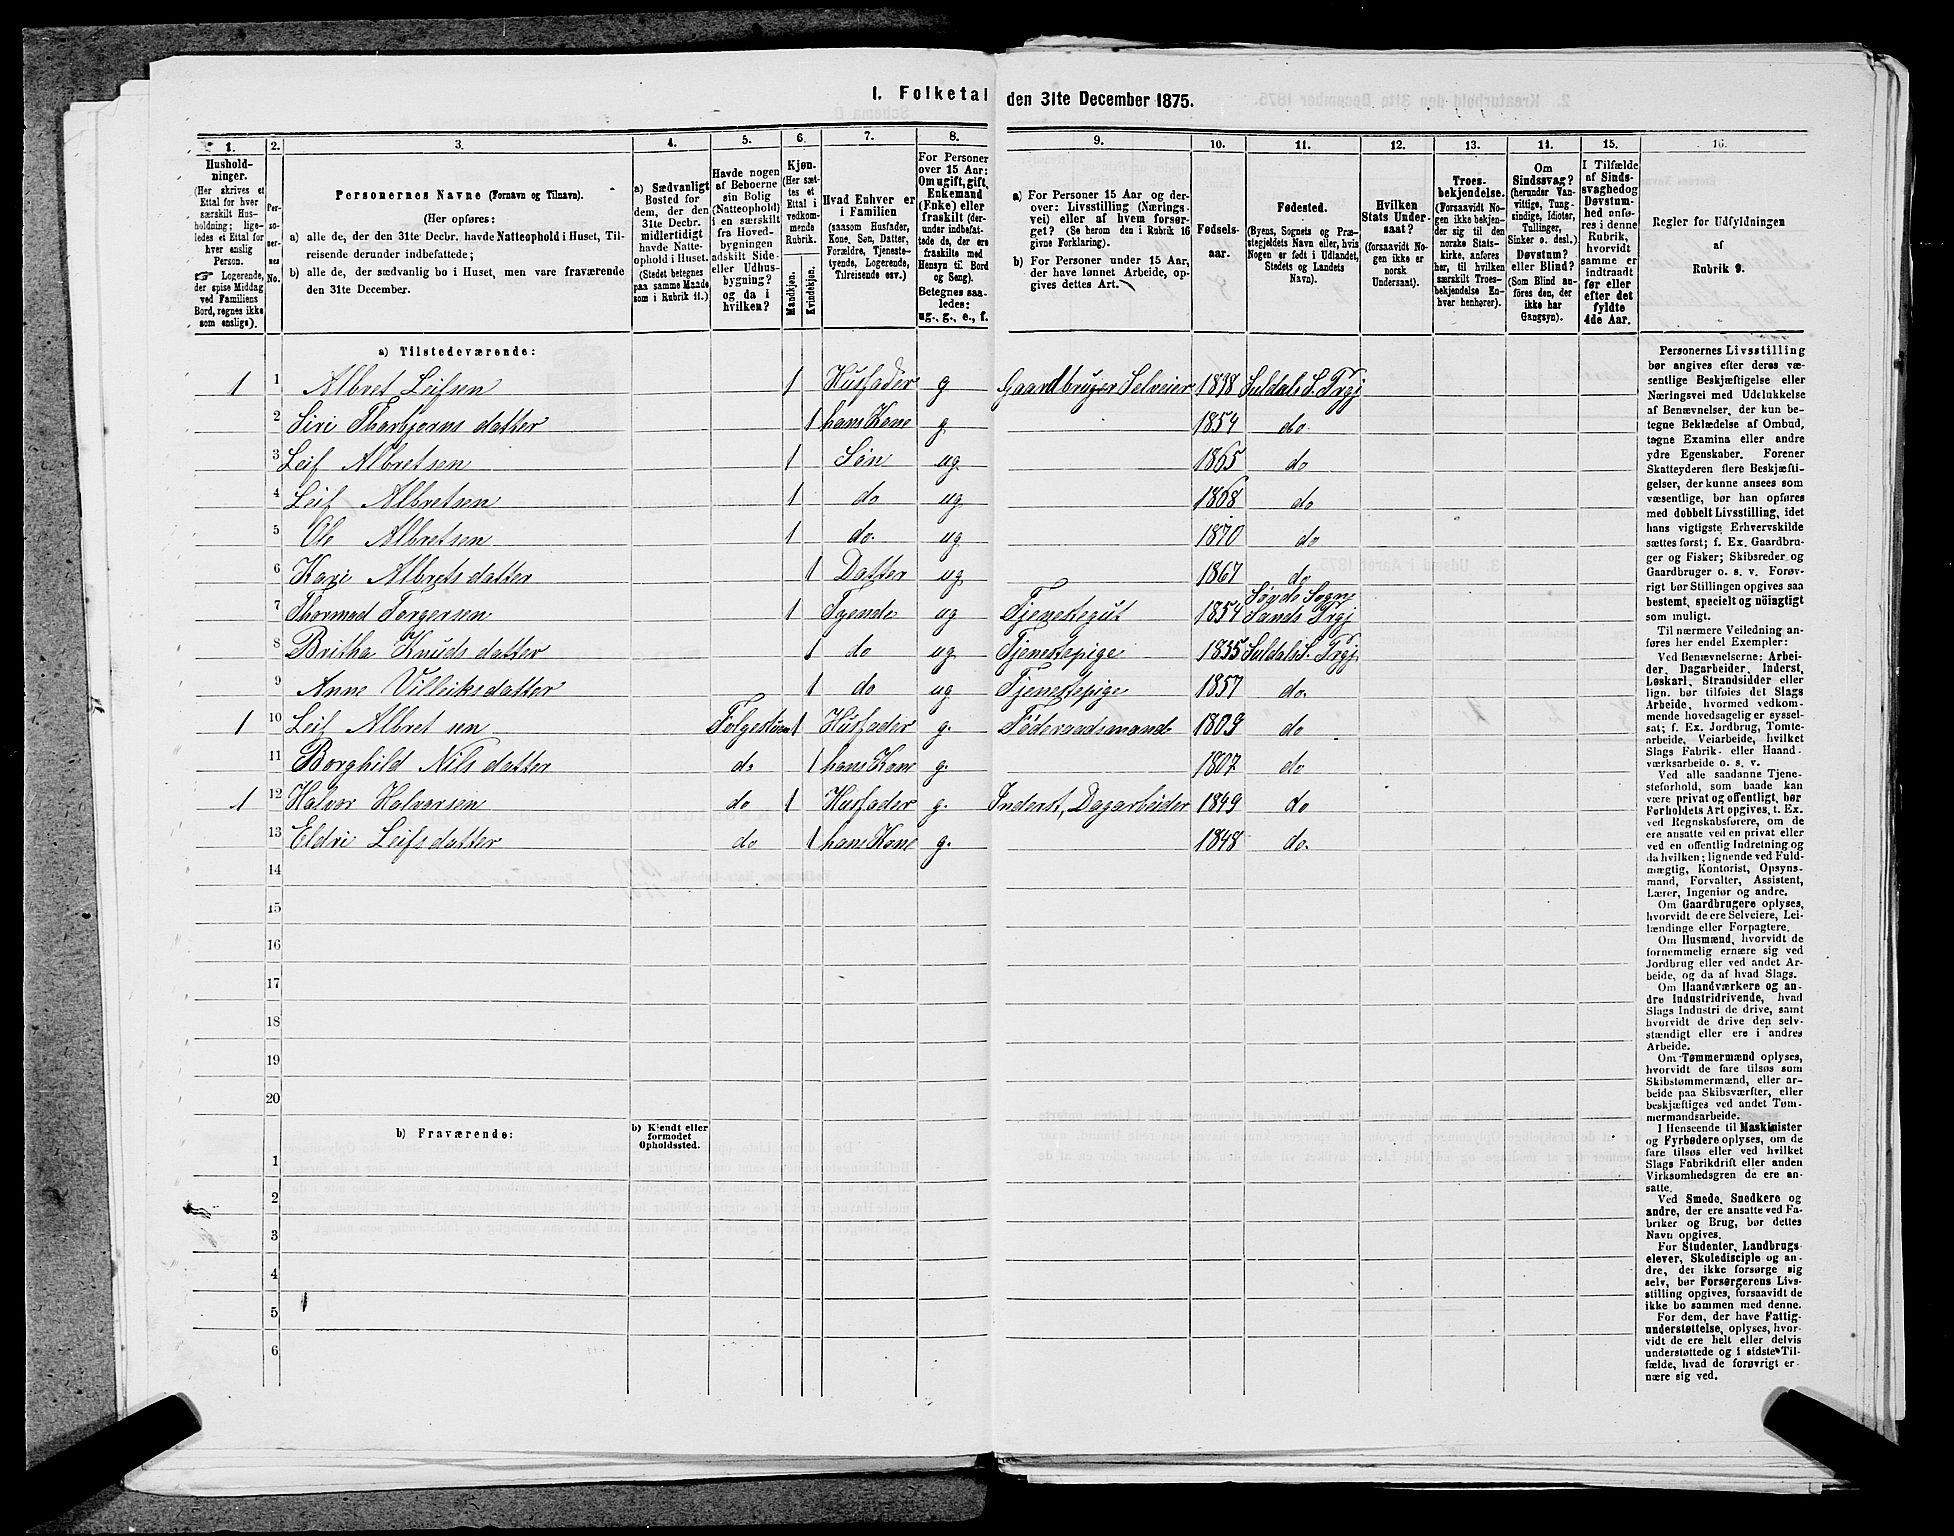 1. Folketal den 31te December 1875.
1. 2. 3. 4. 5. 6. 7. 8. 9. 10. 11. 12. 13. 14. 15. 16.
Husholdninger.
(Her skrives et
Ettal for hver
særskilt Husholdning;
ligeledes et Ettal for
hver enslig
Person.
☞ Logerende,
der spise Middag
ved Familiens
Bord, regnes ikke
som enslige).
Personernes No.
Personernes Navne (Fornavn og Tilnavn).
(Her opføres:
a) alle de, der den 31te Decbr. havde Natteophold i Huset, Tilreisende derunder indbefattede;
b) alle de, der sædvanlig bo i Huset, men vare fraværende den 31te December.
a) Sædvanligt
Bosted for
dem, der den
31te Decbr.
midlertidigt
havde Natteophold i Huset.
(Stedet betegnes
paa samme Maade
som i Rubrik 11.)
Havde nogen
af Beboerne
sin Bolig
(Natteophold)
i en særskilt
fra Hovedbygningen
adskilt Side-
eller Udhusbygning?
og da i
hvilken?
Kjøn.
(Her sættes et
Ettal i
vedkommende
Rubrik.
Mandkjøn.
Kvindekjøn.
Hvad Enhver er
i Familien
(saasom Husfader,
Kone, Søn, Datter,
Forældre, Tjenestetyende, Logerende,
Tilreisende osv.)
For Personer
over 15 Aar:
Om ugift, gift,
Enkemand
(Enke) eller
fraskilt (derunder indbefattede de, der ere
fraskilte med
Hensyn til Bord
og Seng).
Betegnes saaledes:
ug., g., e., f.
a) For Personer 15 Aar og derover: Livsstilling (Næringsvei) eller af hvem forsørget? (Se herom den i Rubrik 16
givne Forklaring).
b) For Personer under 15 Aar,
der have lønnet Arbeide, opgives dettes Art.
Fødselsaar.
Fødested.
(Byens, Sognets og Præstegjeldets Navn eller, hvis
Nogen er født i Udlandet,
Stedets og Landets
Navn).
Hvilken
Stats Undersaat?
(forsaavidt Nogen ikke er
norsk
Undersaat).
Troesbekjendelse.
(Forsaavidt Nogen ikke bekjender sig til den
norske Statskirke, anføres
her, til hvilken
særskilt Troesbekjendelse Enhver henhører).
Om
Sindssvag?
(herunder Vanvittige, Tungsindige, Idioter,
Tullinger,
Sinker o. desl.)
Døvstum?
eller Blind?
(Som Blind anføres den, der
ikke har
Gangsyn).
I Tilfælde
af Sindssvaghed og
Døvstumhed anføres i denne
Rubrik,
hvorvidt
samme er
indtraadt
før eller
efter det
fyldte
4de Aar.
Regler for Udfyldningen
af
Rubrik 9.
a) Tilstedeværende:
1 1 Albret Leifsen 1 Husfader g Gaardbruger Selveier 1838 Suldals S. Prgj
2 Siri Thorbjørnsdatter 1 hans Kone g 1834 do
3 Leif Albretsen 1 Søn ug 1865 do
4 Leif Albretsen 1 do ug 1868 do
5 Ole Albretsen 1 do. ug 1870 do
6 Kari Albretsdatter 1 Datter ug 1867 do
7 Thormod Torgersen 1 Tyende ug Tjenestegut 1854 Søvde Sogn Sands Prgj
8 Britha Knudsdatter 1 do ug Tjenestepige 1835 Suldals S. Prgj
9 Anne Villeiksdatter 1 do ug Tjenestepige 1857 do.
1 10 Leif Albretsen Folgestuen 1 Husfader g. Föderaadsmand 1809 do
11 Borghild Nilsdatter do 1 hans Kone g. 1807 do
1 12 Halvor Halvorsen do 1 Husfader g. Inderst, Dagarbeider 1849 do
13 Eldri Leifsdatter do 1 hans Kone g. 1848 do.
14
15
16
17
18
19
20
b) Fraværende: b) Kjendt eller
formodet
Opholdssted.
1
2
3
4
5
6
Personernes Livsstilling
bør angives efter deres væsentlige Beskjæftigelse eller
Næringsvei med Udelukkelse
af Benævnelser, der kun betegne Beklædelse af Ombud,
tagne Examina eller andre
ydre Egenskaber. Forener
Skatteyderen flere Beskjæftigelser, der kunne ansees som
væsentlige, bør han opføres
med dobbelt Livsstilling, idet
hans vigtigste Erhvervskilde
sættes først; f. Ex. Gaardbruger og Fisker; Skibsreder og
Gaardbruger o. s. v. Forøvrigt bør Stillingen opgives saa
bestemt, specielt og nöiagtigt
som muligt.
Til nærmere Veiledning anføres her endel Exempler:
Ved Benævnelserne: Arbeider, Dagarbeider, Inderst,
Løskarl, Strandsidder eller
lign. bør tilføies det Slags
Arbeide, hvormed vedkommende hovedsagelig er sysselsat; f. Ex. Jordbrug, Tomtearbeide, Veiarbeide, hvilket
Slags Fabrik- eller Haandværksarbeide o. s. v.
Ved alle saadanne Tjenesteforhold, som baade kan
være privat og offentligt, bør
Forholdets Art opgives, t. Ex.
ved Regnskabsførere, om de
ere ansatte ved en privat eller
ved en offentlig Indretning og
da hvilken; lignende ved Fuldmægtig, Kontorist, Opsynsmand, Forvalter, Assistent,
Lærer, Ingeniør og andre.
Om Gaardbrugere oplyses,
hvorvidt de ere Selveiere, Leilændinge eller Forpagtere.
Om Husmænd, hvorvidt de
fornemmelig ernære sig ved
Jordbrug eller ved andet Arbeide, og da af hvad Slags.
Om Haandværkere og andre Industridrivende, hvad
Slags Industri de drive, samt
hvorvidt de drive den selvstændigt eller ere i andres
Arbeide.
Om Tømmermænd oplyses,
hvorvidt de fare tilsøs som
Skibstømmermænd, eller arbeide paa Skibsværfter, eller
beskjæftiges ved andet Tømmermandsarbeide.
I Henseende til Maskinister
og Fyrbødere oplyses, om de
fare tilsøs eller ved hvilket
Slags Fabrikdrift eller anden
Virksomhedsgren de ere ansatte.
Ved Smede, Snedkere og
andre, der ere ansatte ved Fabriker og Brug, bør dettes
Navn opgives.
For Studenter, Landbrugselever, Skoledisciple og andre, der ikke forsørge sig
selv, bør Forsørgerens Livsstilling opgives, forsaavidt de
ikke bo sammen med denne.
For dem, der have Fattigunderstøttelse, oplyses, hvorvidt de ere helt eller delvis
understøttede og i sidste Tilfælde, hvad de forøvrigt ernære sig ved.